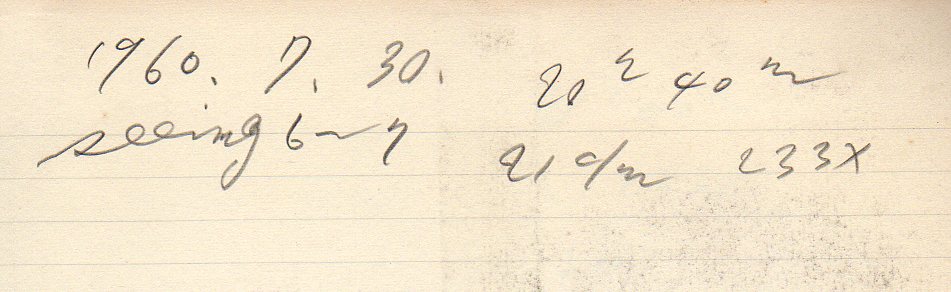 1960. 7. 30. 20h 40m
seeing 6~7 21 c/m 233X